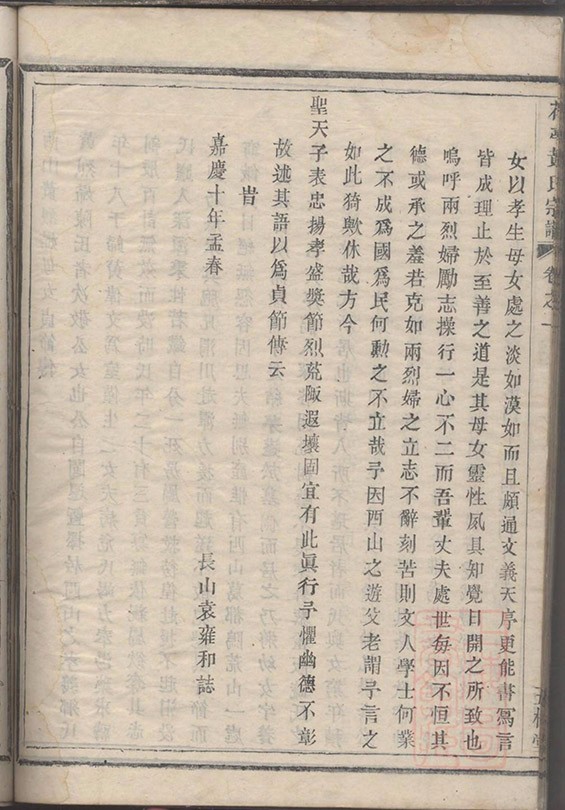 黃氏宗譜 卷之一
女以孝生母女處之淡如漠如而且頗通文義天序更能書寫言
皆成理止於至善之道是其母女靈性夙具知覺日開之所致也
嗚呼兩烈婦勵志操行一心不二而吾輩丈夫處世每因不恒其
德或承之羞若克如兩烈婦之立志不辭刻苦則文人學士何業
之不成爲國爲民何勳之不立哉予因西山之遊父老謂予言之
如此猗歟休哉方今
聖天子表忠揚孝盛獎節烈荒陬遐壤固宜有此眞行予懼幽德不彰
故述其語以爲貞節傳云
旹
嘉慶十年孟春
長山袁雍和誌